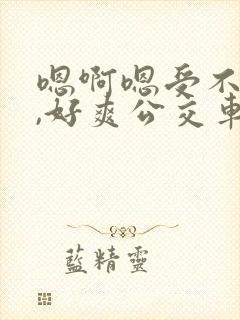 嗯啊嗯受不
,好爽公交车
藍精靈